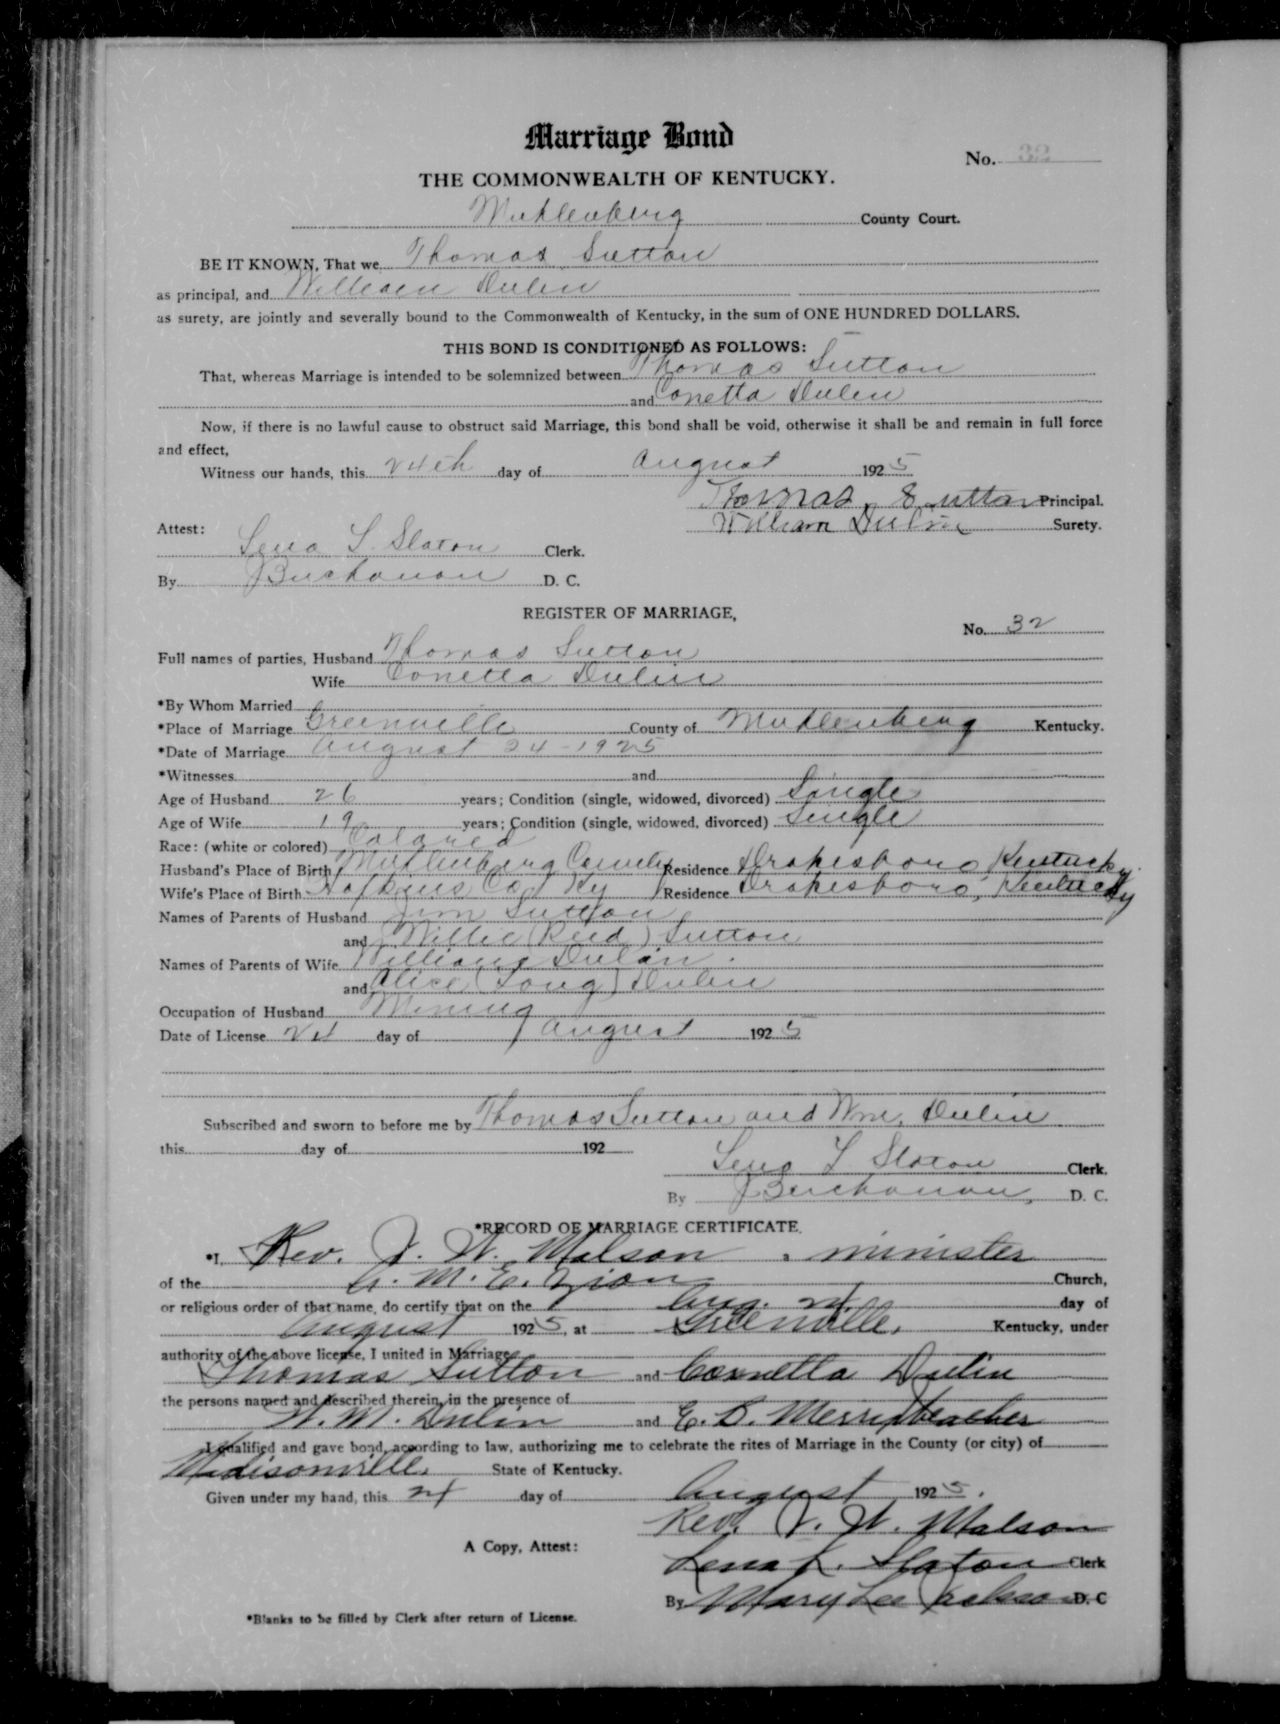 Marriage Bond
No. 32
THE COMMONWEALTH OF KENTUCKY.
Muhlenberg County Court.
BE IT KNOWN, That we Thomas Sutton
as principal, and William Dulin
as surety, are jointly and severally bound to the Commonwealth of Kentucky, in the sum of ONE HUNDRED DOLLARS.
THIS BOND IS CONDITIONED AS FOLLOWS:
That, whereas Marriage is intended to be solemnized between Thomas Sutton
and Conetta Dulin
Now, if there is no lawful cause to obstruct said Marriage, this bond shall be void, otherwise it shall be and remain in full force
and effect,
Witness our hands, this 24th day of August 1925
Thomas Sutton Principal.
William Dulin Surety.
Attest:
Lena L. Slaton Clerk.
By J Buchanan D. C.
REGISTER OF MARRIAGE,
No. 32
Full names of parties, Husband Thomas Sutton
Wife Conetta Dulin
*By Whom Married
*Place of Marriage Greenville County of Muhlenberg Kentucky.
*Date of Marriage August 24-1925
*Witnesses and
Age of Husband 26 years; Condition (single, widowed, divorced) Single
Age of Wife 19 years; Condition (single, widowed, divorced) Single
Race: (white or colored) Colored
Husband's Place of Birth Muhlenberg County Residence Drakesboro, Kentucky.
Wife's Place of Birth Hopkins Co, Ky Residence Drakesboro, Kentucky
Names of Parents of Husband Jim Sutton
and Willie (Reed) Sutton
Names of Parents of Wife William Dulin.
and Alice (Long) Dulin
Occupation of Husband Mining
Date of License 24 day of August 1925
Subscribed and sworn to before me by Thomas Sutton and Wm. Dulin
this day of 192
Lena L Slaton Clerk.
By J Buchanan, D. C.
*RECORD OF MARRIAGE CERTIFICATE.
*I, Rev. J. W. Malson, minister
of the A. M. E. Zion Church,
or religious order of that name, do certify that on the Aug. 24 day of
August 1925, at Greenville, Kentucky, under
authority of the above license, I united in Marriage
Thomas Sutton and Connetta Dulin
the persons named and described therein, in the presence of
W. M. Dulin and E. B.
I qualified and gave bond, according to law, authorizing me to celebrate the rites of Marriage in the County (or city) of
Madisonville, State of Kentucky.
Given under my hand, this 24 day of August 1925.
Rev. J. W. Malson
A Copy, Attest:
Lena L. Slaton Clerk
By Mary Lee D. C
*Blanks to be filled by Clerk after return of License.